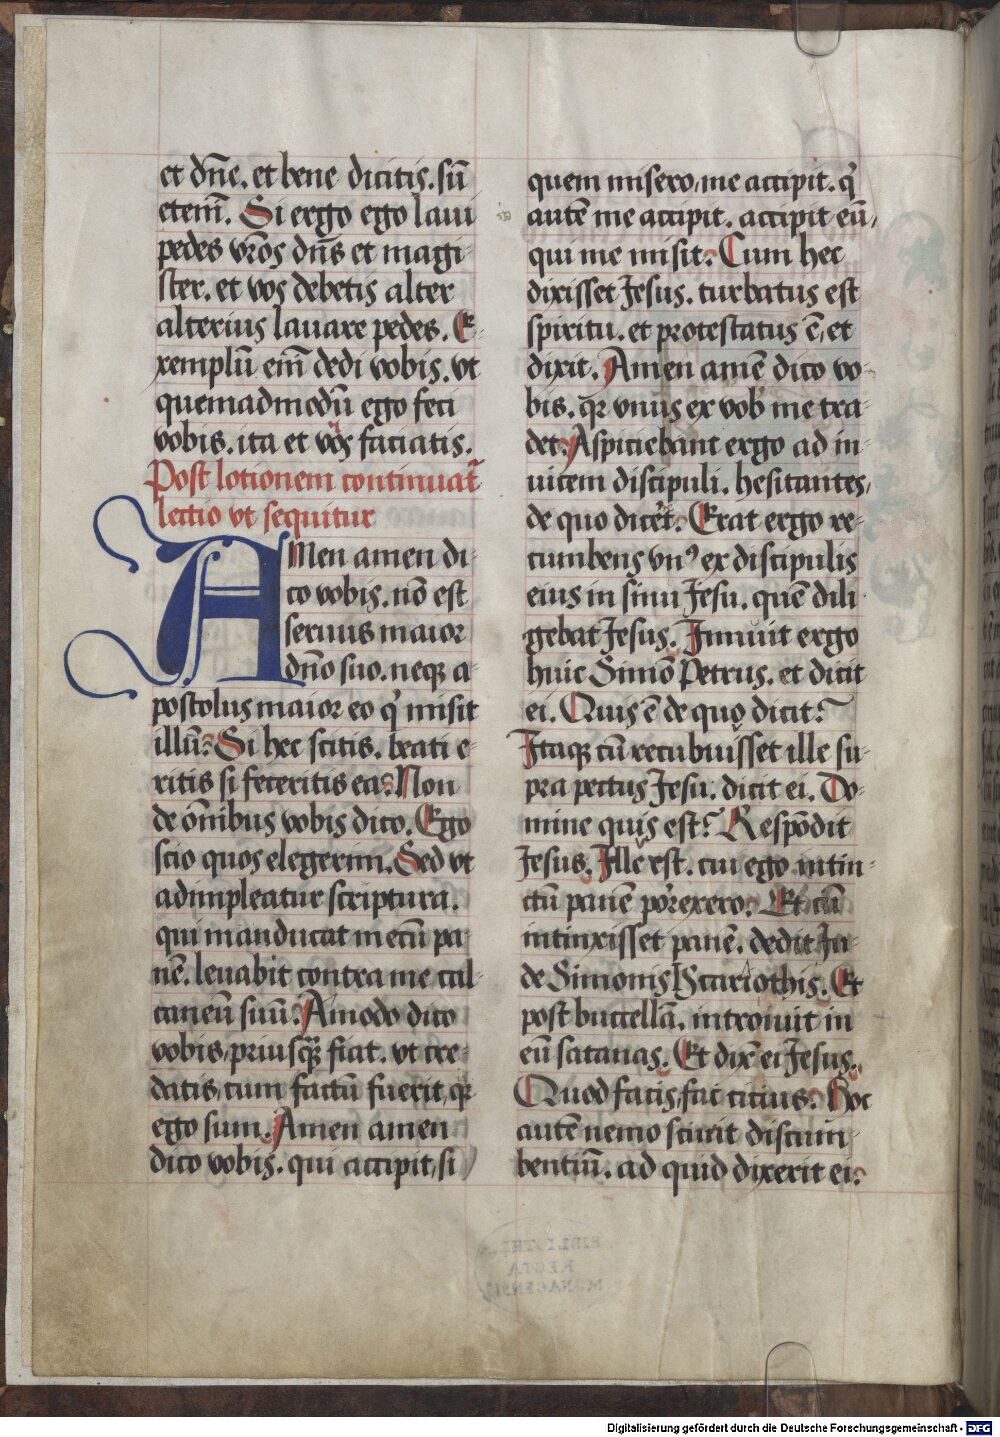 et dn̄e. et bene dicitis. sū
etenī. Si ergo ego laui
pedes vr̄os dn̄s et magi-
ster. et vos debetis alter
alterius lauare pedes. E-
xemplū em̄ dedi vobis. vt
quemadmodū ego feci
vobis. ita et vos faciatis.
Post lotionem continuat̄
lectio vt sequitur
AMen amen di-
co vobis. nō est
seruus maior
dn̄o suo. neqꝫ a-
postolus maior eo qͥ misit
illū. Si hec scitis. beati e-
ritis si feceritis ea. Non
de ōnibus vobis dico. Ego
scio quos elegerim. Sed vt
adimpleatur scriptura.
qui manducat mecū pa-
nē. leuabit contra me cal-
caneū suū. Amodo dico
vobis, priusq̄ꝫ fiat. vt cre-
datis, cum factū fuerit, qꝛ
ego sum. Amen amen
dico vobis. qui accipit, si
quem misero, me accipit. qͥ
autē me accipit. accipit eū,
qui me misit. Cum hec
dixisset Jesus. turbatus est
spiritu. et protestatus ē, et
dixit. Amen amē dico vo-
bis. qꝛ vnus ex vob̾ me tra-
det. Aspiciebant ergo ad in-
uicem discipuli. hesitantes,
de quo dicēt. Erat ergo re-
cumbens vnꝰ ex discipulis
eius in sinu Jesu. quē dili-
gebat Jesus. Jnnuit ergo
huic Simō Petrus. et dicit
ei. Quis ē de quo dicit?
Jtaqꝫ cū recubuisset ille su-
pra pectus Jesu. dicit ei. Do-
mine quis est? Respōdit
Jesus. Jlle est. cui ego intin-
ctū panē porexero. Et cū
intinxisset panē. dedit Ju-
de Simonis Jscariothis. Et
post buccellā. introiuit in
eū satanas. Et dix̄ ei Jesus.
Quod facis, fac citius. Hoc
autē nemo sciuit discum-
bentiū. ad quid dixerit ei.
Digitalisierung gefördert durch die Deutsche Forschungsgemeinschaft - DFG